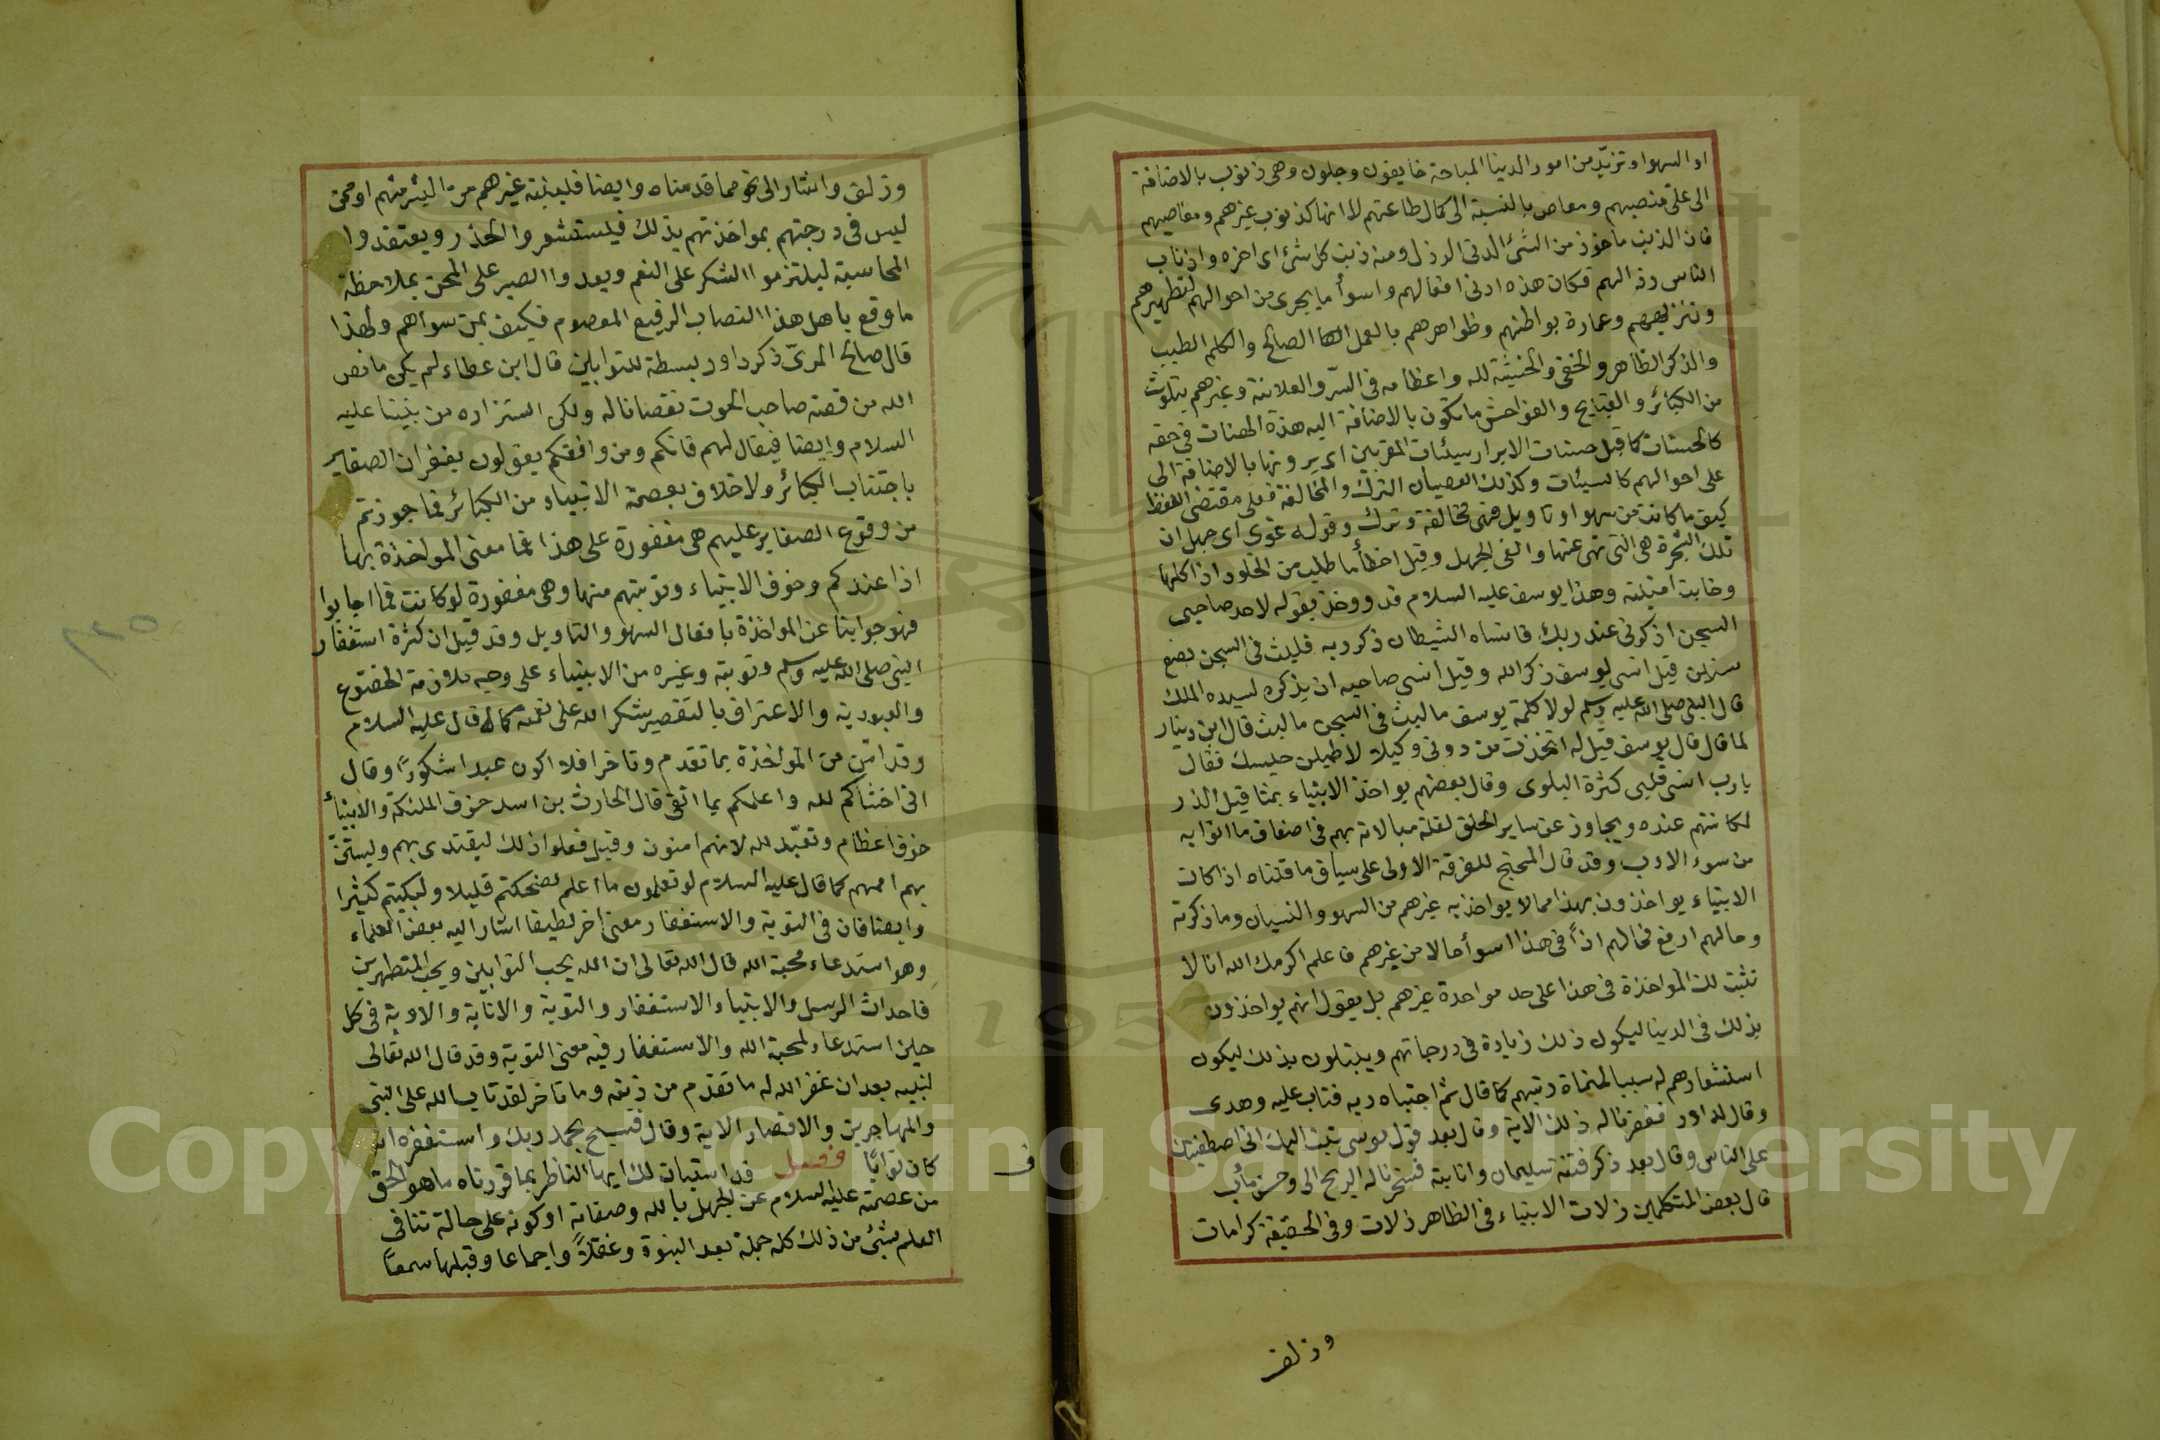 او السهو او تزيّد من امور الدنيا المباحة خايفون وجلون وهى ذنوب بالاضافة
الى علىّ منصبهم ومعاص بالنسبة الى كمال طاعتهم لا انها كذنوب غيرهم ومعاصيهم
فان الذنب ماخوذ من الشئ الدنى الرذل ومنه ذنب كل شئ اى اخره واذناب
الناس رذالهم فكان هذه ادنى افعالهم واسوأ ما يجرى من احوالهم لتطهيرهم
وتنزيههم وعمارة بواطنهم وظواهرهم بالعمل الصالح والكلم الطيب
والذكر الظاهر والخفى والخشية لله واعظامه فى السرّ والعلانية وغيرهم يتلوث
من الكبائر والقبايح والفواحش ما تكون بالاضافة اليه هذه الهنات فى حقه
كالحسنات كما قيل حسنات الابرار سيئات المقربين اى يرونها بالاضافة الى
على احوالهم كالسيئات وكذلك العصيان الترك والمخالفة فعلى مقتضى اللفظ
كيف ما كانت من سهو او تاويل فهى مخالفة وترك وقوله غوى اى جهل ان
تلك الشجرة هى التى نهى عنها والغى الجهل وقيل اخطأ ما طلب من الخلود اذ اكلها
وخابت امنيته وهذا يوسف عليه السلام قد ووخذ بقوله لاحد صاحبى
السجن اذكرنى عند ربك فانساه الشيطان ذكر ربه فلبث فى السجن بضع
سنين قيل انسى يوسف ذكر الله وقيل انسى صاحبه ان يذكره لسيده الملك
قال النبى صلى الله عليه وسلم لولا كلمة يوسف ما لبث فى السجن ما لبث قال ابن دينار
لما قال قال يوسف قيل له اتخذت من دونى وكيلا لاطيلن حبسك فقال
يا رب انسى قلبى كثرة البلوى وقال بعضهم يواخذ الانبياء بمثاقيل الذر
لمكانتهم عنده ويجاوز عن ساير الخلق لقلة مبالاته بهم فى اضعاف ما اتوا به
من سوء الادب وقد قال المحتج للفرقة الاولى على سياق ما قلناه اذا كان
الانبياء يواخذون بهذا مما لا يواخذ به غيرهم من السهو والنسيان وما ذكرته
وحالهم ارفع فحالهم اذاً فى هذا اسوأ حالا من غيرهم فاعلم اكرمك الله انا لا
نثبت لك المواخذة فى هذا على حد مواخذة غيرهم بل يقول انهم يواخذون
بذلك فى الدنيا ليكون ذلك زيادة فى درجاتهم ويبتلون بذلك ليكون
استشعارهم له سببا لمنماة رتبهم كما قال ثم اجتباه ربه فتاب عليه وهدى
وقال لداود فغفرنا له ذلك الاية وقال بعد قول موسى تبت اليك انى اصطفيتك
على الناس وقال بعد ذكر فتنة سليمان وانابته فسخرنا له الريح الى وحسن مأب
قال بعض المتكلمين زلات الانبياء فى الظاهر زلات وفى الحقيقة كرامات
وزلف
وزلف واشار الى نحو مما قدمناه وايضا فلينبه غيرهم من البشر منهم او ممن
ليس فى درجتهم بمواخذتهم بذلك فيستشعروا الحذر ويعتقدوا
المحاسبة ليلتزموا الشكر على النعم ويعدوا الصبر على المحن بملاحظة
ما وقع باهل هذا النصاب الرفيع المعصوم فكيف بمن سواهم ولهذا
قال صالح المرىّ ذكر داود بسطة للتوابين قال ابن عطاء لم يكن ما نص
الله من قصة صاحب الحوت نقصنا له ولكن استزاده من نبينا عليه
السلام وايضا فيقال لهم فانكم ومن وافقكم يقولون بغفران الصغاير
باجتناب الكبائر ولا خلاف بعصمة الانبياء من الكبائر فما جوزتم
من وقوع الصغاير عليهم هى مغفورة على هذا فما معنى المواخذة بها
اذا عندكم وخوف الانبياء وتوبتهم منها وهى مغفورة لو كانت فما اجابوا
فهو جوابنا عن المواخذة بافعال السهو والتاويل وقد قيل ان كثرة استغفار
النبى صلى الله عليه وسلم وتوبته وغيره من الانبياء على وجه ملازمة الخضوع
والعبودية والاعتراف بالتقصير شكر الله على نعمه كما قال عليه السلام
وقد امّن من المواخذة بما تقدم وتاخر افلا اكون عبدا شكوراً وقال
انى اخشاكم لله واعلمكم بما اتقى قال الحارث بن اسد خوف الملئكة والانبياء
خوف اعظام وتعبّد لله لانهم امنون وقيل فعلوا ذلك ليقتدى بهم وليستنّ
بهم اممهم كما قال عليه السلام لو تعلمون ما اعلم لضحكتم قليلا ولبكيتم كثيرا
وايضا فان فى التوبة والاستغفار معنى اخر لطيفا اشار اليه بعض العلماء
وهو استدعاء محبة الله قال الله تعالى ان الله يحب التوابين ويحب المتطهرين
فاحداث الرسل والانبياء الاستغفار والتوبة والانابة والاوبة فى كل
حين استدعاء لمحبة الله والاستغفار فيه معنى التوبة وقد قال الله تعالى
لنبيه بعد ان غفر الله له ما تقدم من ذنبه وما تاخر لقد تاب الله على النبى
والمهاجرين والانصار الاية وقال فسبح بحمد ربك واستغفره انه
كان توابًا فصل قد استبان لك ايها الناظر بما قررناه ما هو الحق
من عصمته عليه السلام عن الجهل بالله وصفاته او كونه على حالة تنافى
العلم بشئ من ذلك كله جملة بعد النبوة وعقلاً واجماعا وقبلها سمعًا
ف
Copyright © King Saud University
1957